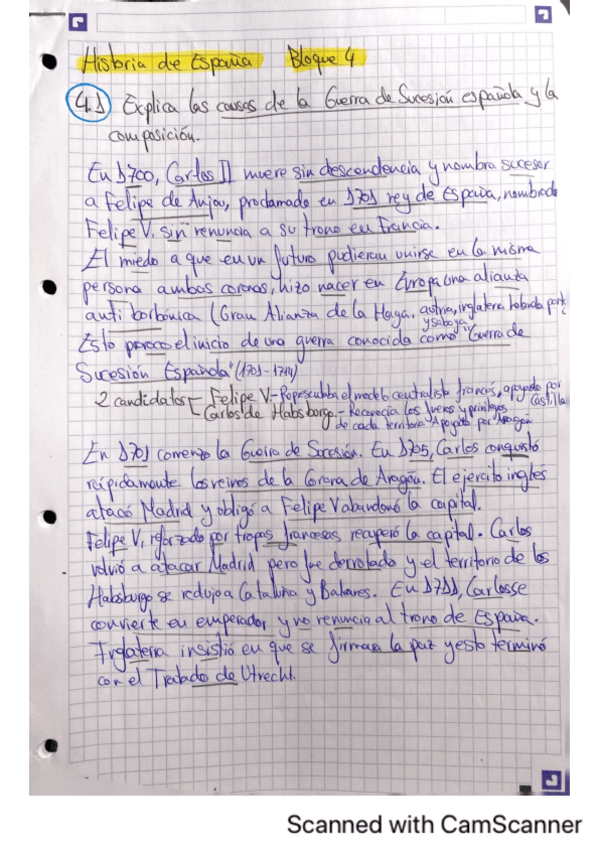 Historia de España Bloque 4
4.1 Explica las causas de la Guerra de Sucesión española y la
composición.
En 1700, Carlos II muere sin descendencia y nombra sucesor
a Felipe de Anjou, proclamado en 1701 rey de España, nombrado
Felipe V, sin renuncia a su trono en Francia.
El miedo a que en un futuro pudieran unirse en la misma
persona ambas coronas, hizo nacer en Europa una alianza
anti borbónica (Gran Alianza de la Haya, austria, inglaterra holanda port
y saboya)
Esto provoco el inicio de una guerra conocida como "Guerra de
Sucesión Española" (1701-1714)
2 candidatos Felipe V.- Representaba el modelo centralista francés, apoyado por
Castilla
Carlos de Habsborgo.- Reconocia los fueros y privilegios
de cada territorio Apoyado por Aragón
En 1701 comenzo la Guerra de Sucesión. En 1705, Carlos conquistó
rápidamente los reinos de la Corona de Aragón. El ejercito inglés
atacó Madrid y obligó a Felipe V abandonó la capital.
Felipe V, reforzado por tropas francesas recuperó la capital. Carlos
volvió a atacar Madrid pero fue derrotado y el territorio de los
Habsburgo se redujo a Cataluña y Baleares. En 1711, Carlos se
convierte en emperador y no renuncia al trono de España.
Inglaterra insistió en que se firmara la paz y esto terminó
con el Tratado de Utrecht.
Scanned with CamScanner